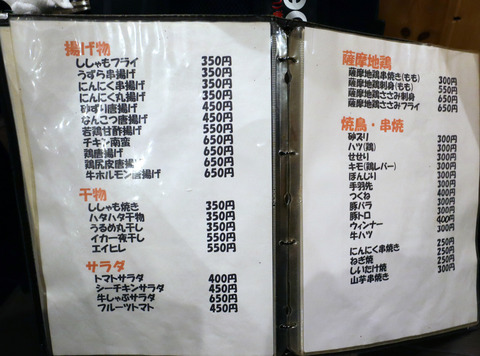 揚げ物
ししゃもフライ 350円
うずら串揚げ 350円
にんにく串揚げ 350円
にんにく丸揚げ 350円
砂ずり唐揚げ 450円
なんこつ唐揚げ 450円
若鶏甘酢揚げ 550円
チキン南蛮 650円
鶏唐揚げ 650円
鶏尻皮唐揚げ 650円
牛ホルモン唐揚げ 650円
干物
ししゃも焼き 350円
ハタハタ干物 350円
うるめ丸干し 350円
イカ一夜干し 550円
エイヒレ 550円
サラダ
トマトサラダ 400円
シーチキンサラダ 450円
牛しゃぶサラダ 650円
フルーツトマト 450円
薩摩地鶏
薩摩地鶏串焼き(もも) 300円
薩摩地鶏刺身(もも) 550円
薩摩地鶏ささみ刺身 450円
薩摩地鶏ささみフライ 650円
焼鳥・串焼
砂ズリ 300円
ハツ(鶏) 300円
せせり 300円
キモ(鶏レバー) 300円
ぼんじり 300円
手羽先 300円
つくね 300円
豚バラ 300円
豚トロ 400円
ウィンナー 300円
牛ハツ 300円
にんにく串焼き 250円
ねぎ焼 250円
しいたけ焼 300円
山芋串焼き